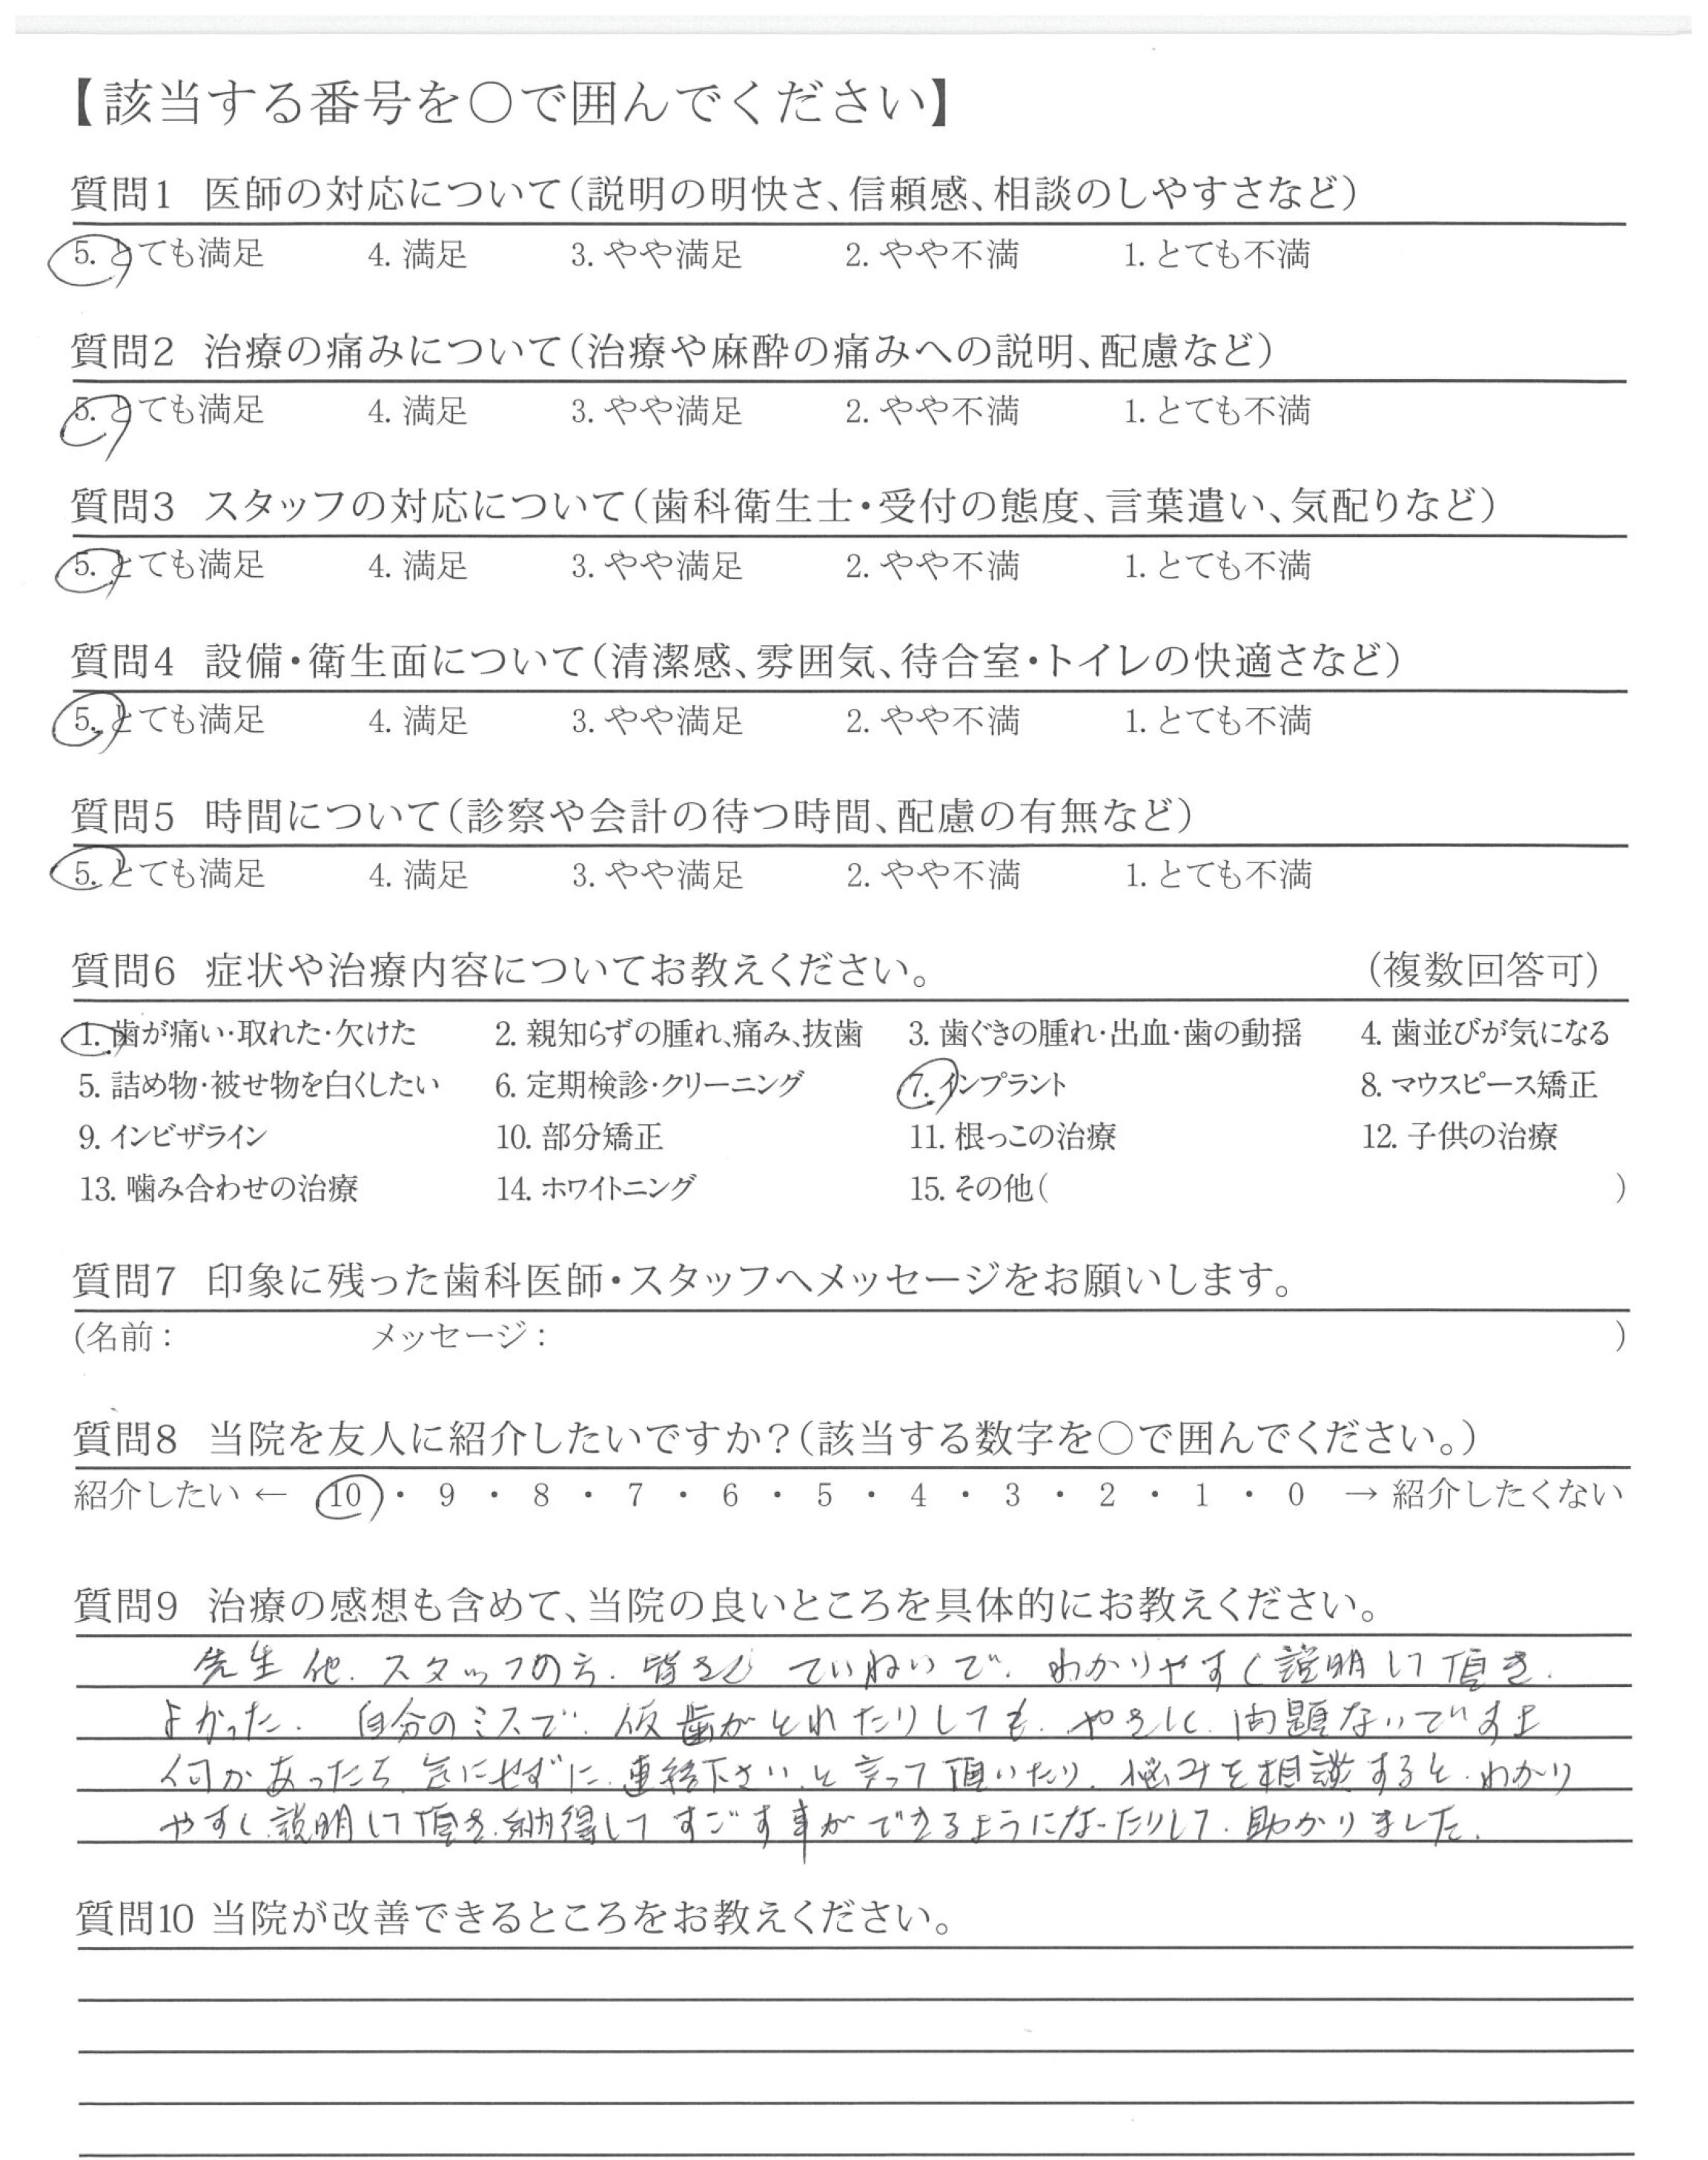 【該当する番号を○で囲んでください】
質問1 医師の対応について（説明の明快さ、信頼感、相談のしやすさなど）
5. とても満足 4. 満足 3. やや満足 2. やや不満 1. とても不満
質問2 治療の痛みについて（治療や麻酔の痛みへの説明、配慮など）
5. とても満足 4. 満足 3. やや満足 2. やや不満 1. とても不満
質問3 スタッフの対応について（歯科衛生士・受付の態度、言葉遣い、気配りなど）
5. とても満足 4. 満足 3. やや満足 2. やや不満 1. とても不満
質問4 設備・衛生面について（清潔感、雰囲気、待合室・トイレの快適さなど）
5. とても満足 4. 満足 3. やや満足 2. やや不満 1. とても不満
質問5 時間について（診察や会計の待つ時間、配慮の有無など）
5. とても満足 4. 満足 3. やや満足 2. やや不満 1. とても不満
質問6 症状や治療内容についてお教えください。 （複数回答可）
1. 歯が痛い・取れた・欠けた 2. 親知らずの腫れ、痛み、抜歯 3. 歯ぐきの腫れ・出血・歯の動揺 4. 歯並びが気になる
5. 詰め物・被せ物を白くしたい 6. 定期検診・クリーニング 7. インプラント 8. マウスピース矯正
9. インビザライン 10. 部分矯正 11. 根っこの治療 12. 子供の治療
13. 噛み合わせの治療 14. ホワイトニング 15. その他（ ）
質問7 印象に残った歯科医師・スタッフへメッセージをお願いします。
(名前： メッセージ： )
質問8 当院を友人に紹介したいですか？（該当する数字を○で囲んでください。）
紹介したい ← 10 ・ 9 ・ 8 ・ 7 ・ 6 ・ 5 ・ 4 ・ 3 ・ 2 ・ 1 ・ 0 → 紹介したくない
質問9 治療の感想も含めて、当院の良いところを具体的にお教えください。
先生他、スタッフの方、皆さん ていねいで、わかりやすく説明して頂き、
よかった。 自分のミスで、仮歯がとれたりしても、やさしく、問題ないですよ
何かあったら、気にせずに、連絡下さい、と言って頂いたり、悩みを相談すると、わかり
やすく、説明して頂き、納得して すごす事ができるようになったりして、助かりました。
質問10 当院が改善できるところをお教えください。